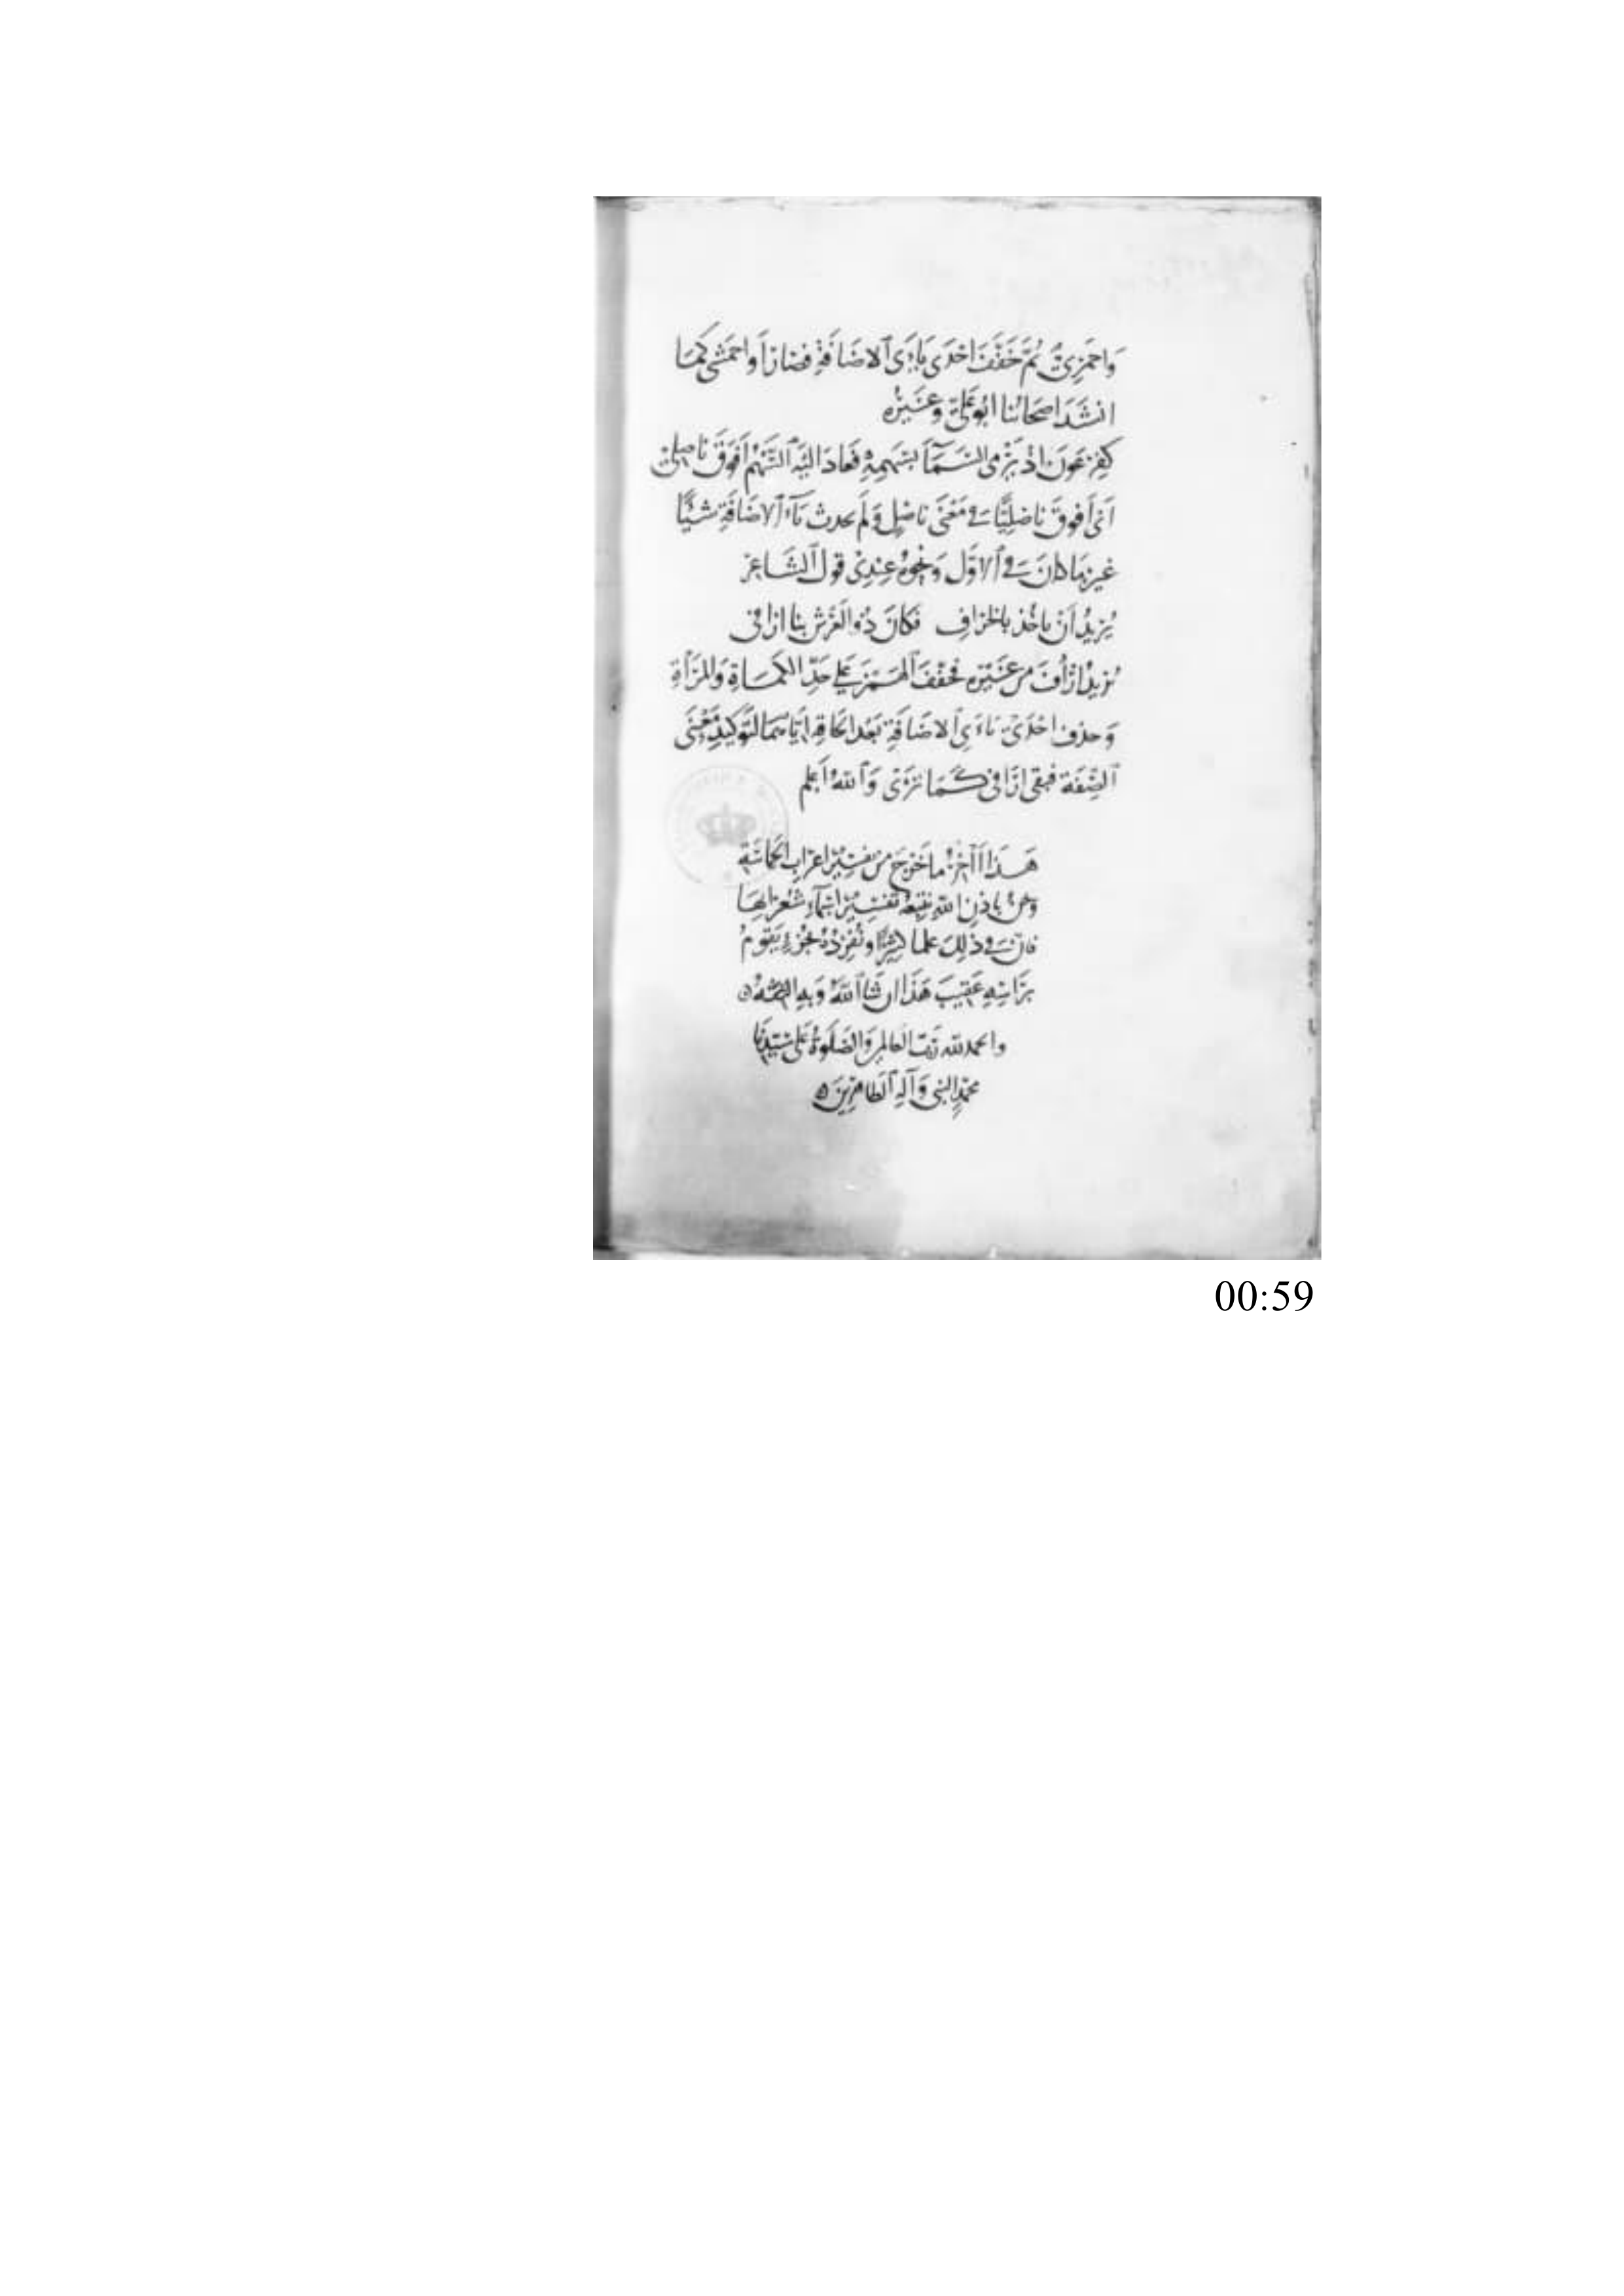 وَاحمَرِيّ ثمَّ خَفَّفَ احْدَى يَاءَىِ ٱلاضَافَةِ فصَارَ أَواحمَرِى كمَا
انشَدَ اصحَابُنا ابُو عَلىّ وغَيرُه
كفِرعَونَ اذ يَرْمى السَّمَآءَ بسَهمِهِ فعَادَ اليَهِ ٱلسَّهمُ أَفوَقَ ناصِلى
اَىْ أَفوقَ نَاصِليًّا فى مَعْنَى ناصِلٍ وَلَم يحدث يَآءُ ٱلاضَافَةِ شَيْئًا
غيرَ مَا كانَ فى ٱلاوَّل وَنحوُهُ عِندِى قول ٱلشَاعر
يُريدُ أن ياخُذ بالخراف فكانَ ذُو العَرش بنا ارافى
يُريدُ ارْأَفَ من غيْرِه فخفّفَ ٱلهمْزَ على حَدِّ الكَمَاةِ وَالمرَاةِ
وَحذف احْدَى يَاءَىِ ٱلاضَافَةِ بَعْدَ الحَاقِهِ ايّاهمَا لتَوكيدِ مَعْنَى
ٱلصِّفَة فبقى ارَافى كَمَا تَرَى وَٱللهُ أَعلم
هَذَا آخرُ ما خرَجَ من تفسِيْر اعرَاب الحمَاسَةِ
ونحنُ باذنِ اللهِ نتبعهُ تَفسِيْرَ اسْمآءِ شُعرَائهَا
فان فى ذلِكَ علما كثِيْرًا ونُفرِدُهُ بجُزءٍ يَقُومُ
برَاسِهِ عَقيبَ هَذَا ان شَآ ٱللهُ وَبهِ الثقَةُ ه
والحمد لله رَبّ العَالمين وَالصَّلَوةُ عَلى سَيِّدِنَا
محمّدٍ النبى وَآلِهِ ٱلطاهِرِينَ ه
00:59